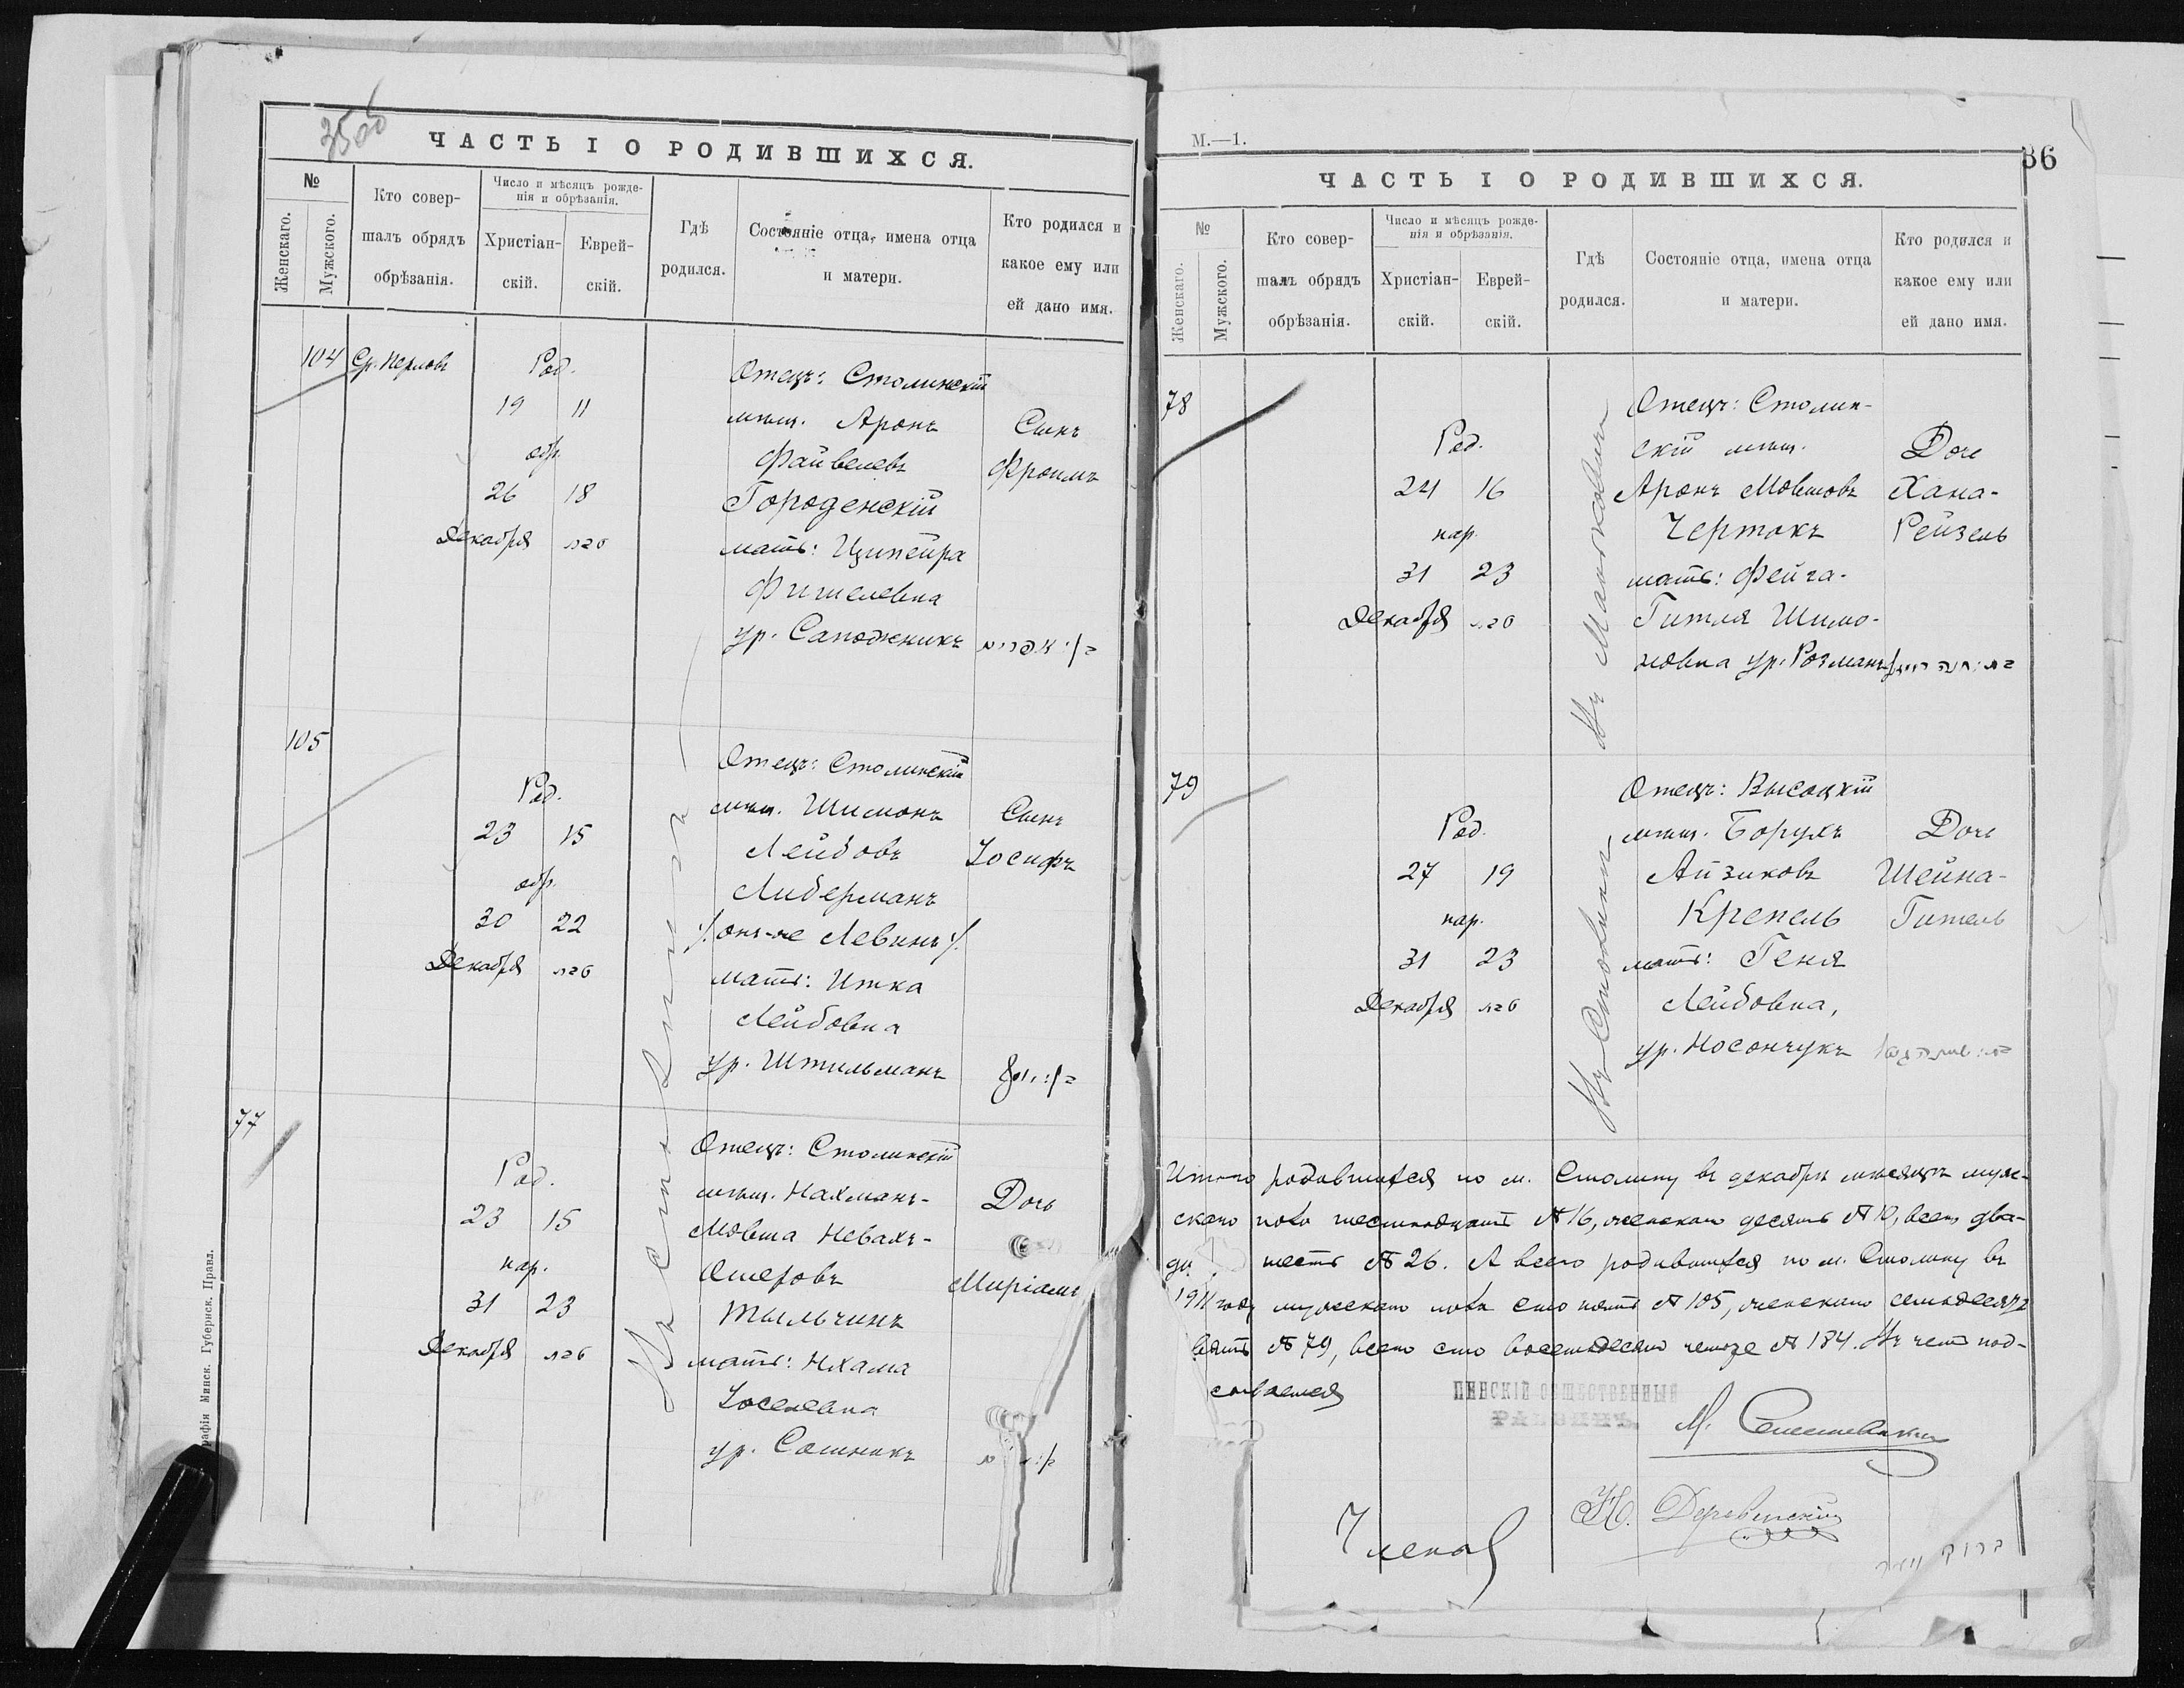 3500
ЧАСТЬ I О РОДИВШИХСЯ.
№
Женскаго.
Мужского.
Кто совер-
шалъ обрядъ
обрѣзанія.
Число и мѣсяцъ рожде-
нія и обрѣзанія.
Христіан-
скій.
Еврей-
скій.
Гдѣ
родился.
Состояніе отца, имена отца
и матери.
Кто родился и
какое ему или
ей дано имя.
104 Ср. Перловъ
Род.
19 11
обр.
26 18
Декабря
Отецъ: Столинскій
мѣщ. Аронъ
Файвелевъ
Городенскій
мать: Ципейра
Фишелевна
ур. Сапожникъ
Сынъ
Фроимъ
105
Род.
23 15
обр.
30 22
Декабря
Отецъ: Столинскій
мѣщ. Шимонъ
Лейбовъ
Либерманъ
онъ-же Левинъ
мать: Итка
Лейбовна
ур. Штильманъ
Сынъ
Іосифъ
77
Род.
23 15
нар.
31 23
Декабря
Отецъ: Столинскій
мѣщ. Нахманъ-
Мовша Невахъ-
Ошеровъ
Тыльчинъ
мать: Нхама
Іоселевна
ур. Сошникъ
Дочь
Миріамъ
рафія Минск. Губернск. Правл.
М.—1.
36
ЧАСТЬ I О РОДИВШИХСЯ.
№
Женскаго.
Мужского.
Кто совер-
шалъ обрядъ
обрѣзанія.
Число и мѣсяцъ рожде-
нія и обрѣзанія.
Христіан-
скій.
Еврей-
скій.
Гдѣ
родился.
Состояніе отца, имена отца
и матери.
Кто родился и
какое ему или
ей дано имя.
78
Род.
24 16
нар.
31 23
Декабря
Отецъ: Столин-
скій мѣщ.
Аронъ Мовшовъ
Чертокъ
мать: Фейга-
Гитля Шимо-
новна ур. Розманъ
Дочь
Хана-
Рейзель
79
Род.
27 19
нар.
31 23
Декабря
Въ Столинѣ
Отецъ: Высоцкій
мѣщ. Борухъ
Айзиковъ
Крепель
мать: Геня
Лейбовна,
ур. Носончукъ
Дочь
Шейна-
Гитель
Итого родившихся по м. Столину въ декабрѣ мѣсяцѣ муж-
скаго пола шестнадцать № 16, женскаго десять № 10, всего два-
дц шесть № 26. А всего родившихся по м. Столину въ
1911 году мужскаго пола сто пять № 105, женскаго семьдесятъ
вять № 79, всего сто восемьдесятъ четыре № 184. Въ чемъ под-
ПИНСКІЙ ОБЩЕСТВЕННЫЙ
РАВВИНЪ.
Члена